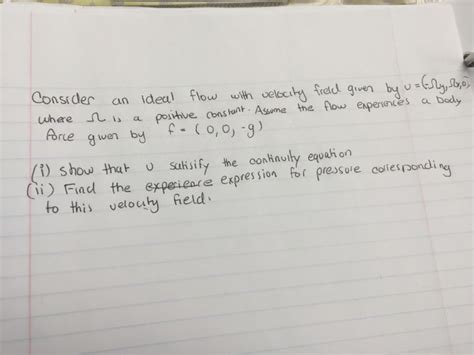 Consider an ideal flow with velocity field given by u = (-Ωy, Ωx, 0),
where Ω is a positive constant. Assume the flow experiences a body
force given by f = (0, 0, -g)
(i) show that u satisify the continuity equation
(ii) Find the experience expression for pressure corresponding
to this velocity field.